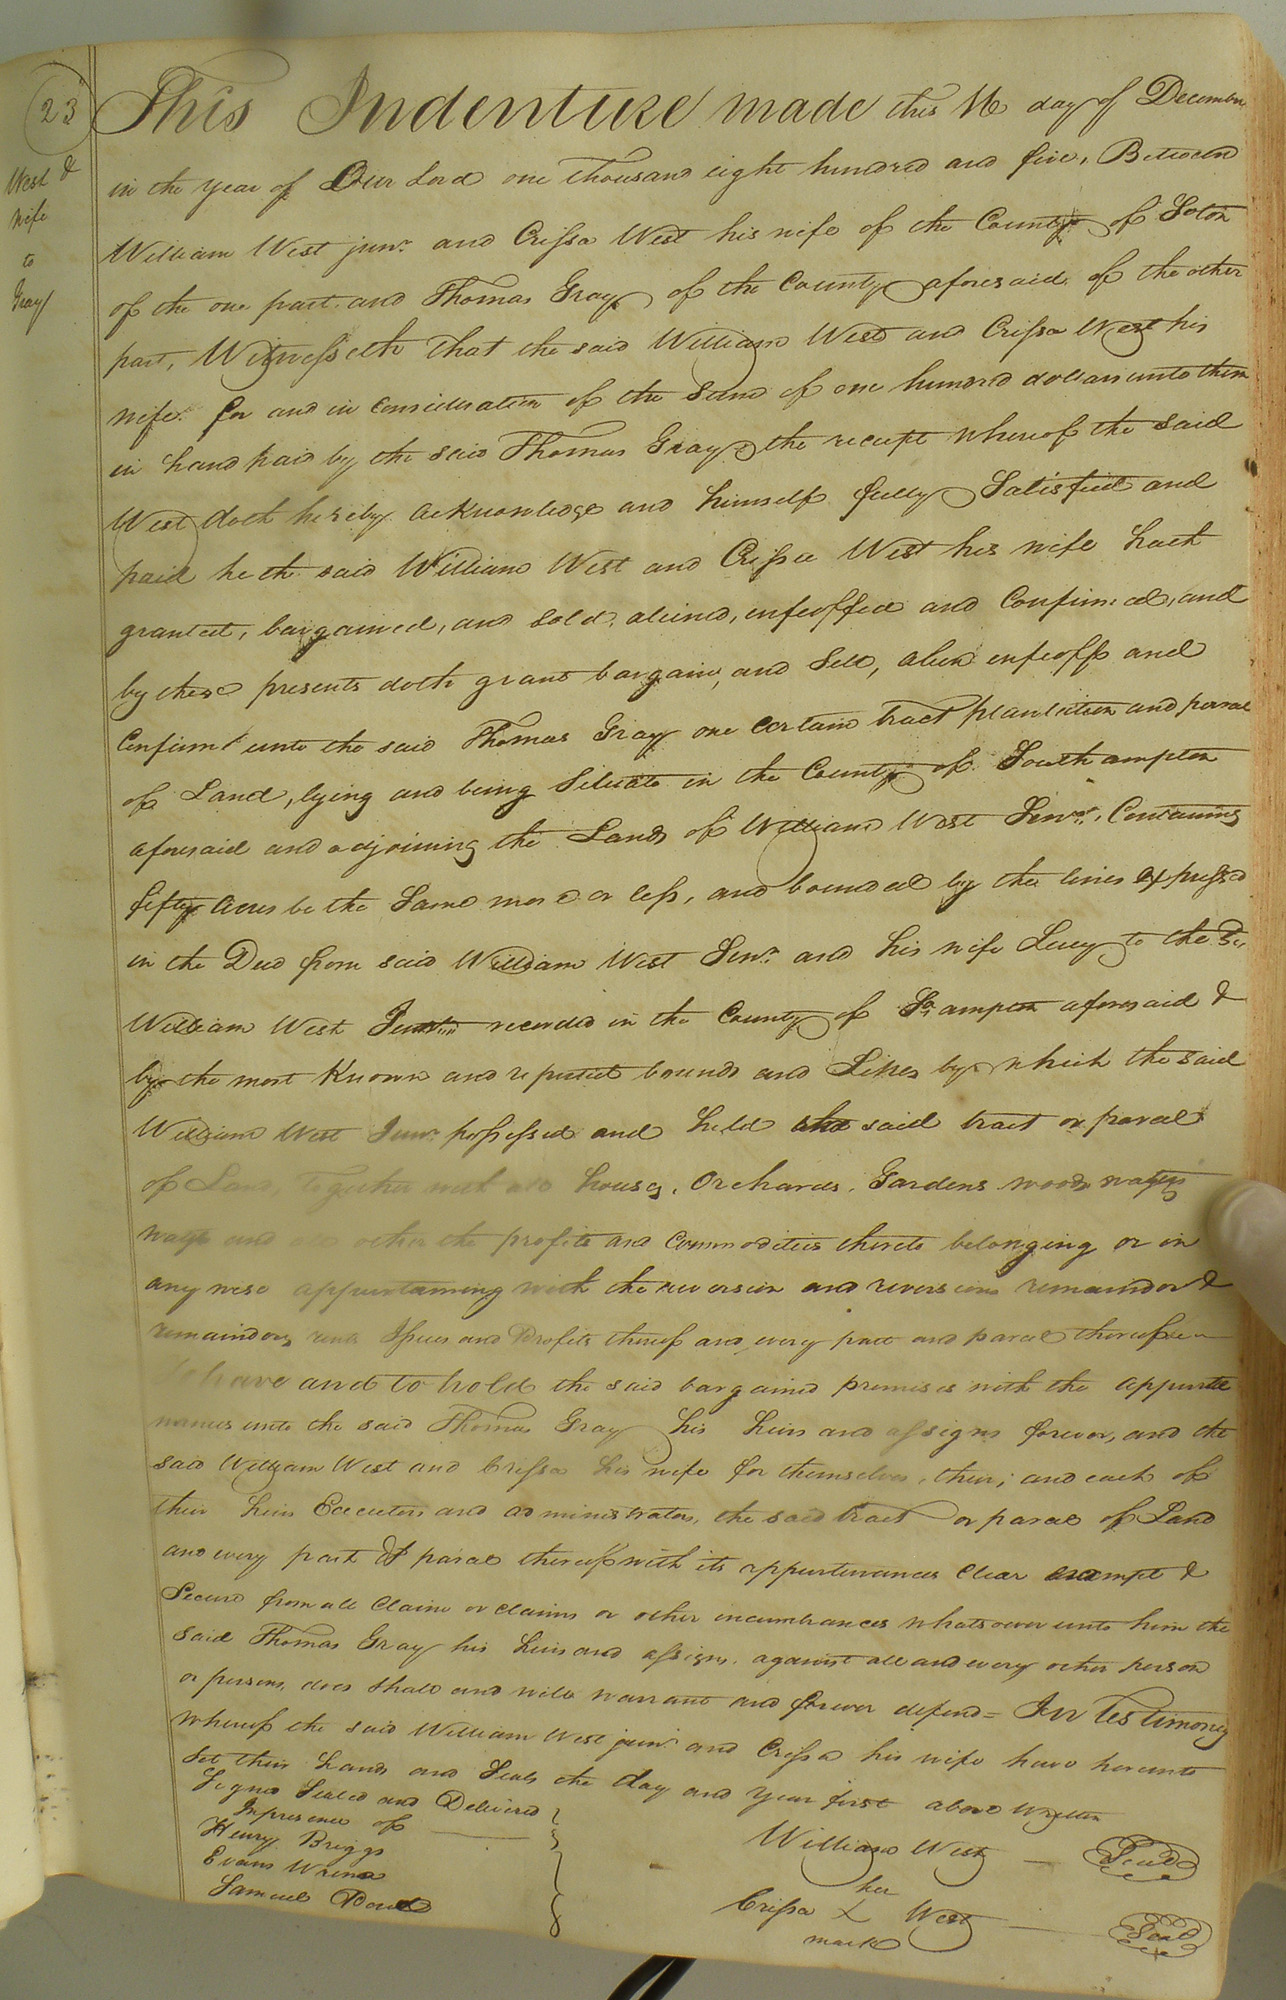 23
West &
wife
to
Gray
This Indenture made this 16 day of December
in the year of Our Lord one thousand eight hundred and five, Between
William West junr. and Crissa West his wife of the County of Soton
of the one part and Thomas Gray of the County aforesaid of the other
part, Witnesseth that the said William West and Crissa West his
wife for and in consideration of the Sum of one hundred dollars unto them
in hand paid by the said Thomas Gray the receipt whereof the said
West doth hereby acknowledge and himself fully Satisfied and
paid he the said William West and Crissa West his wife hath
granted, bargained, and Sold, aliened, enfeoffed and Confirmed, and
by these presents doth grant bargain, and Sell, alien enfeoff and
Confirm unto the said Thomas Gray one certain tract plantation and parcel
of Land, lying and being Situate in the County of Southampton
aforesaid and adjoining the Lands of William West Senr. Containing
fifty Acres be the Same more or less, and bounded by the lines expressed
in the Deed from said William West Senr. and his wife Lucy to the sd.
William West Junr. recorded in the County of So.ampton aforesaid &
by the most Known and reputed bounds and Lines by which the said
William West Junr. possessed and held the said tract or parcel
of Land, together with all houses, Orchards, Gardens woods waters
ways and all other the profits and Commodities thereto belonging or in
any wise appurtaining with the reversion and reversions remainder &
remainders rents Issues and Profits thereof and every part and parcel thereof
To have and to hold the said bargained premises with the appurte
nances unto the said Thomas Gray his heirs and assigns forever, and the
said William West and Crissa his wife for themselves, their, and each of
their heirs Executors and administrators, the said tract or parcel of Land
and every part & parcel thereof with its appurtenances Clear exempt &
Secure from all Claim or claims or other incumbrances whatsoever unto him the
said Thomas Gray his heirs and assigns, against all and every other person
or persons, does Shall and will warrant and forever defend = In Testimony
whereof the said William West junr. and Crissa his wife have hereunto
Set their hands and Seals the day and year first above written
Signed Sealed and Delivered
In presence of
Henry Briggs
Evans Wrenn
Samuel
William West Seal
her
Crissa X West Seal
mark